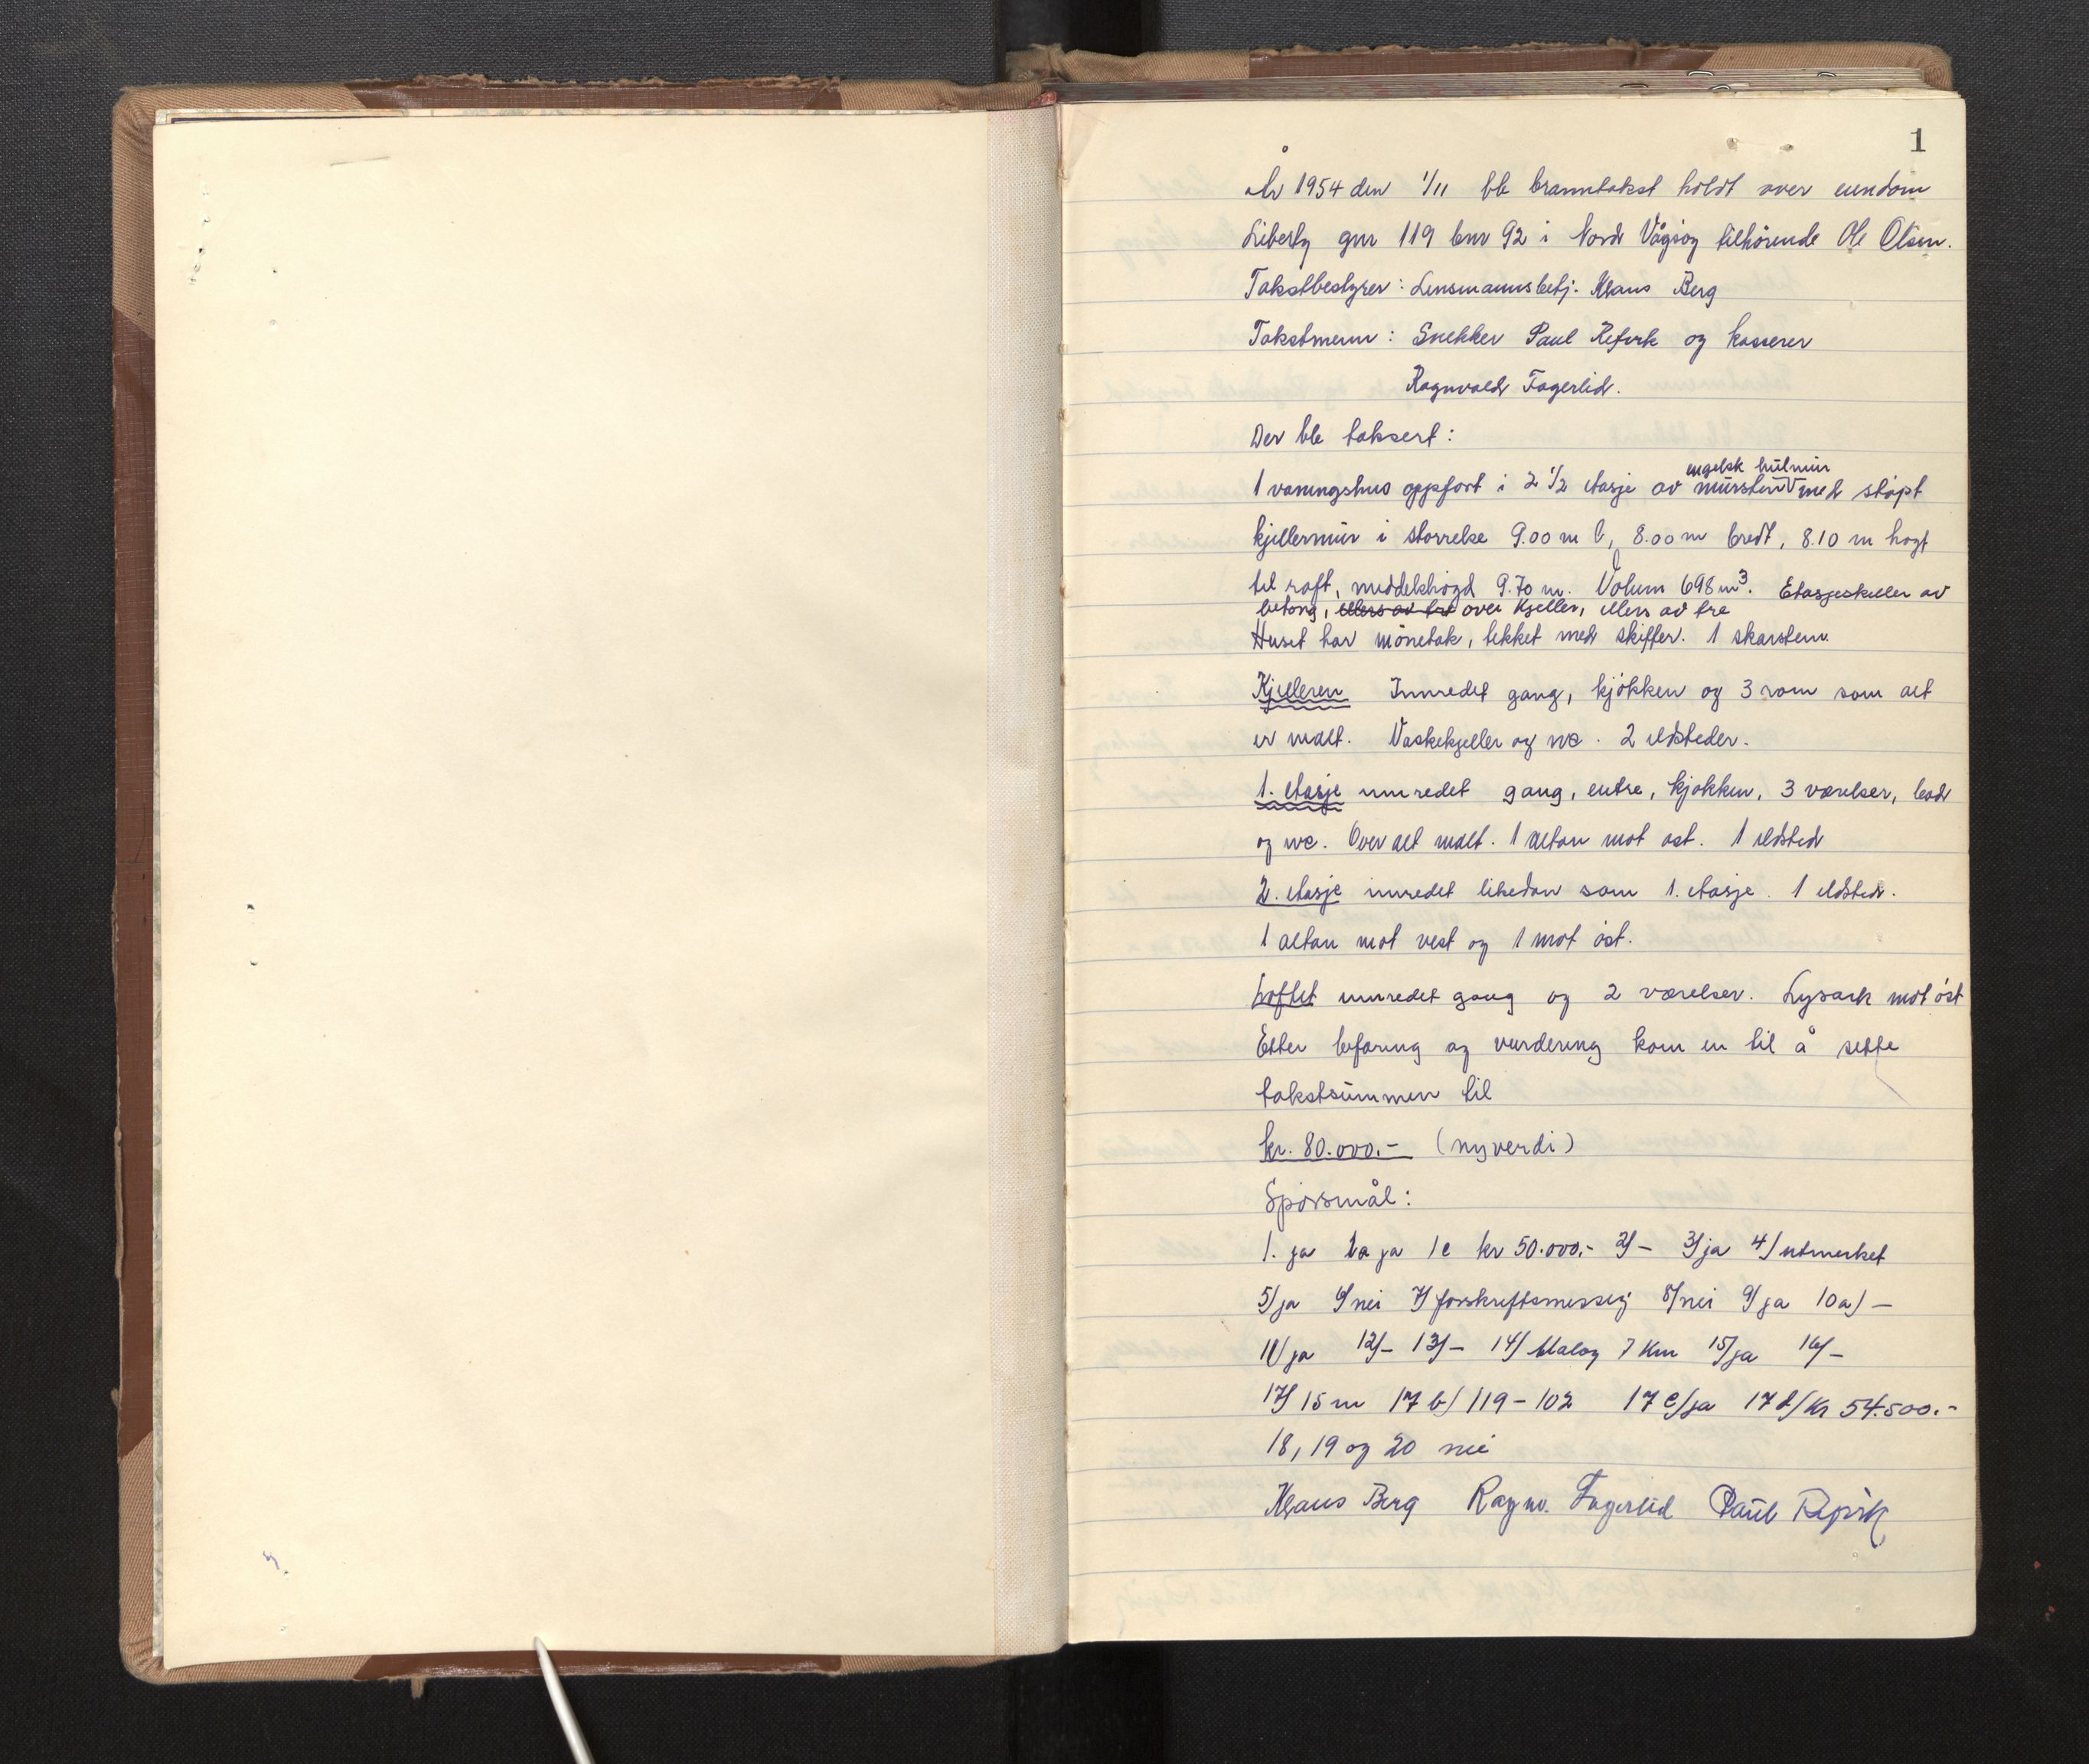 1
År 1954 den 1/11 ble branntakst holdt over eiendom
Liberty gnr 119 bnr 92 i Nord Vågsøy tilhørende Ole Olsen.
Takstbestyrer: Lensmannsbetj. Klaus Berg
Takstmenn: Snekker Paul Refvik og kasserer
Ragnvald Fagerlid.
Der ble taksert:
engelsk hulmur
1 vaningshus oppført i 2 1/2 etasje av murstein V med støpt
kjellermur i størrelse 9.00 m l, 8.00 m bredt, 8.10 m høgt
til raft, middelshøgd 9.70 m. Volum 698 m3. Etasjeskiller av
betong, ellers av tre over kjeller, ellers av tre
Huset har mønetak, tekket med skiffer. 1 skorstein.
Kjelleren Innredet gang, kjøkken og 3 rom som alt
er malt. Vaskekjeller og wc. 2 ildsteder.
1. etasje innredet gang, entre, kjøkken, 3 værelser, bad
og wc. Over alt malt. 1 altan mot øst. 1 ildsted
2. etasje innredet likedan som 1. etasje. 1 ildsted.
1 altan mot vest og 1 mot øst.
Loftet innredet gang og 2 værelser. Lysark mot øst
Etter befaring og vurdering kom en til å sette
takstsummen til
kr. 80.000.- (nyverdi)
Spørsmål:
1. ja 1a ja 1c kr 50.000.- 2/- 3/ja 4/utmerket
5/ja 6/nei 7/forskriftsmessig 8/nei 9/ja 10a/-
11/ja 12/- 13/- 14/Måløy 7 km 15/ja 16/-
17/ 15 m 17 b/ 119-102 17 c/ja 17 d/ Kr 54.500.-
18, 19 og 20 nei
Klaus Berg Ragnv. Fagerlid Paul Refvik